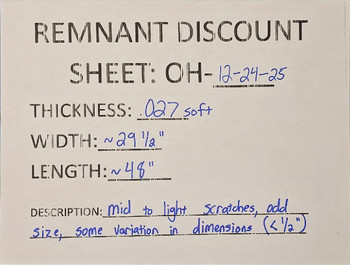 REMNANT DISCOUNT
SHEET: OH-12-24-25
THICKNESS: .027 soft
WIDTH: ~29 1/2"
LENGTH: ~48"
DESCRIPTION: mid to light scratches, odd
size, some variation in dimensions (<1/2")